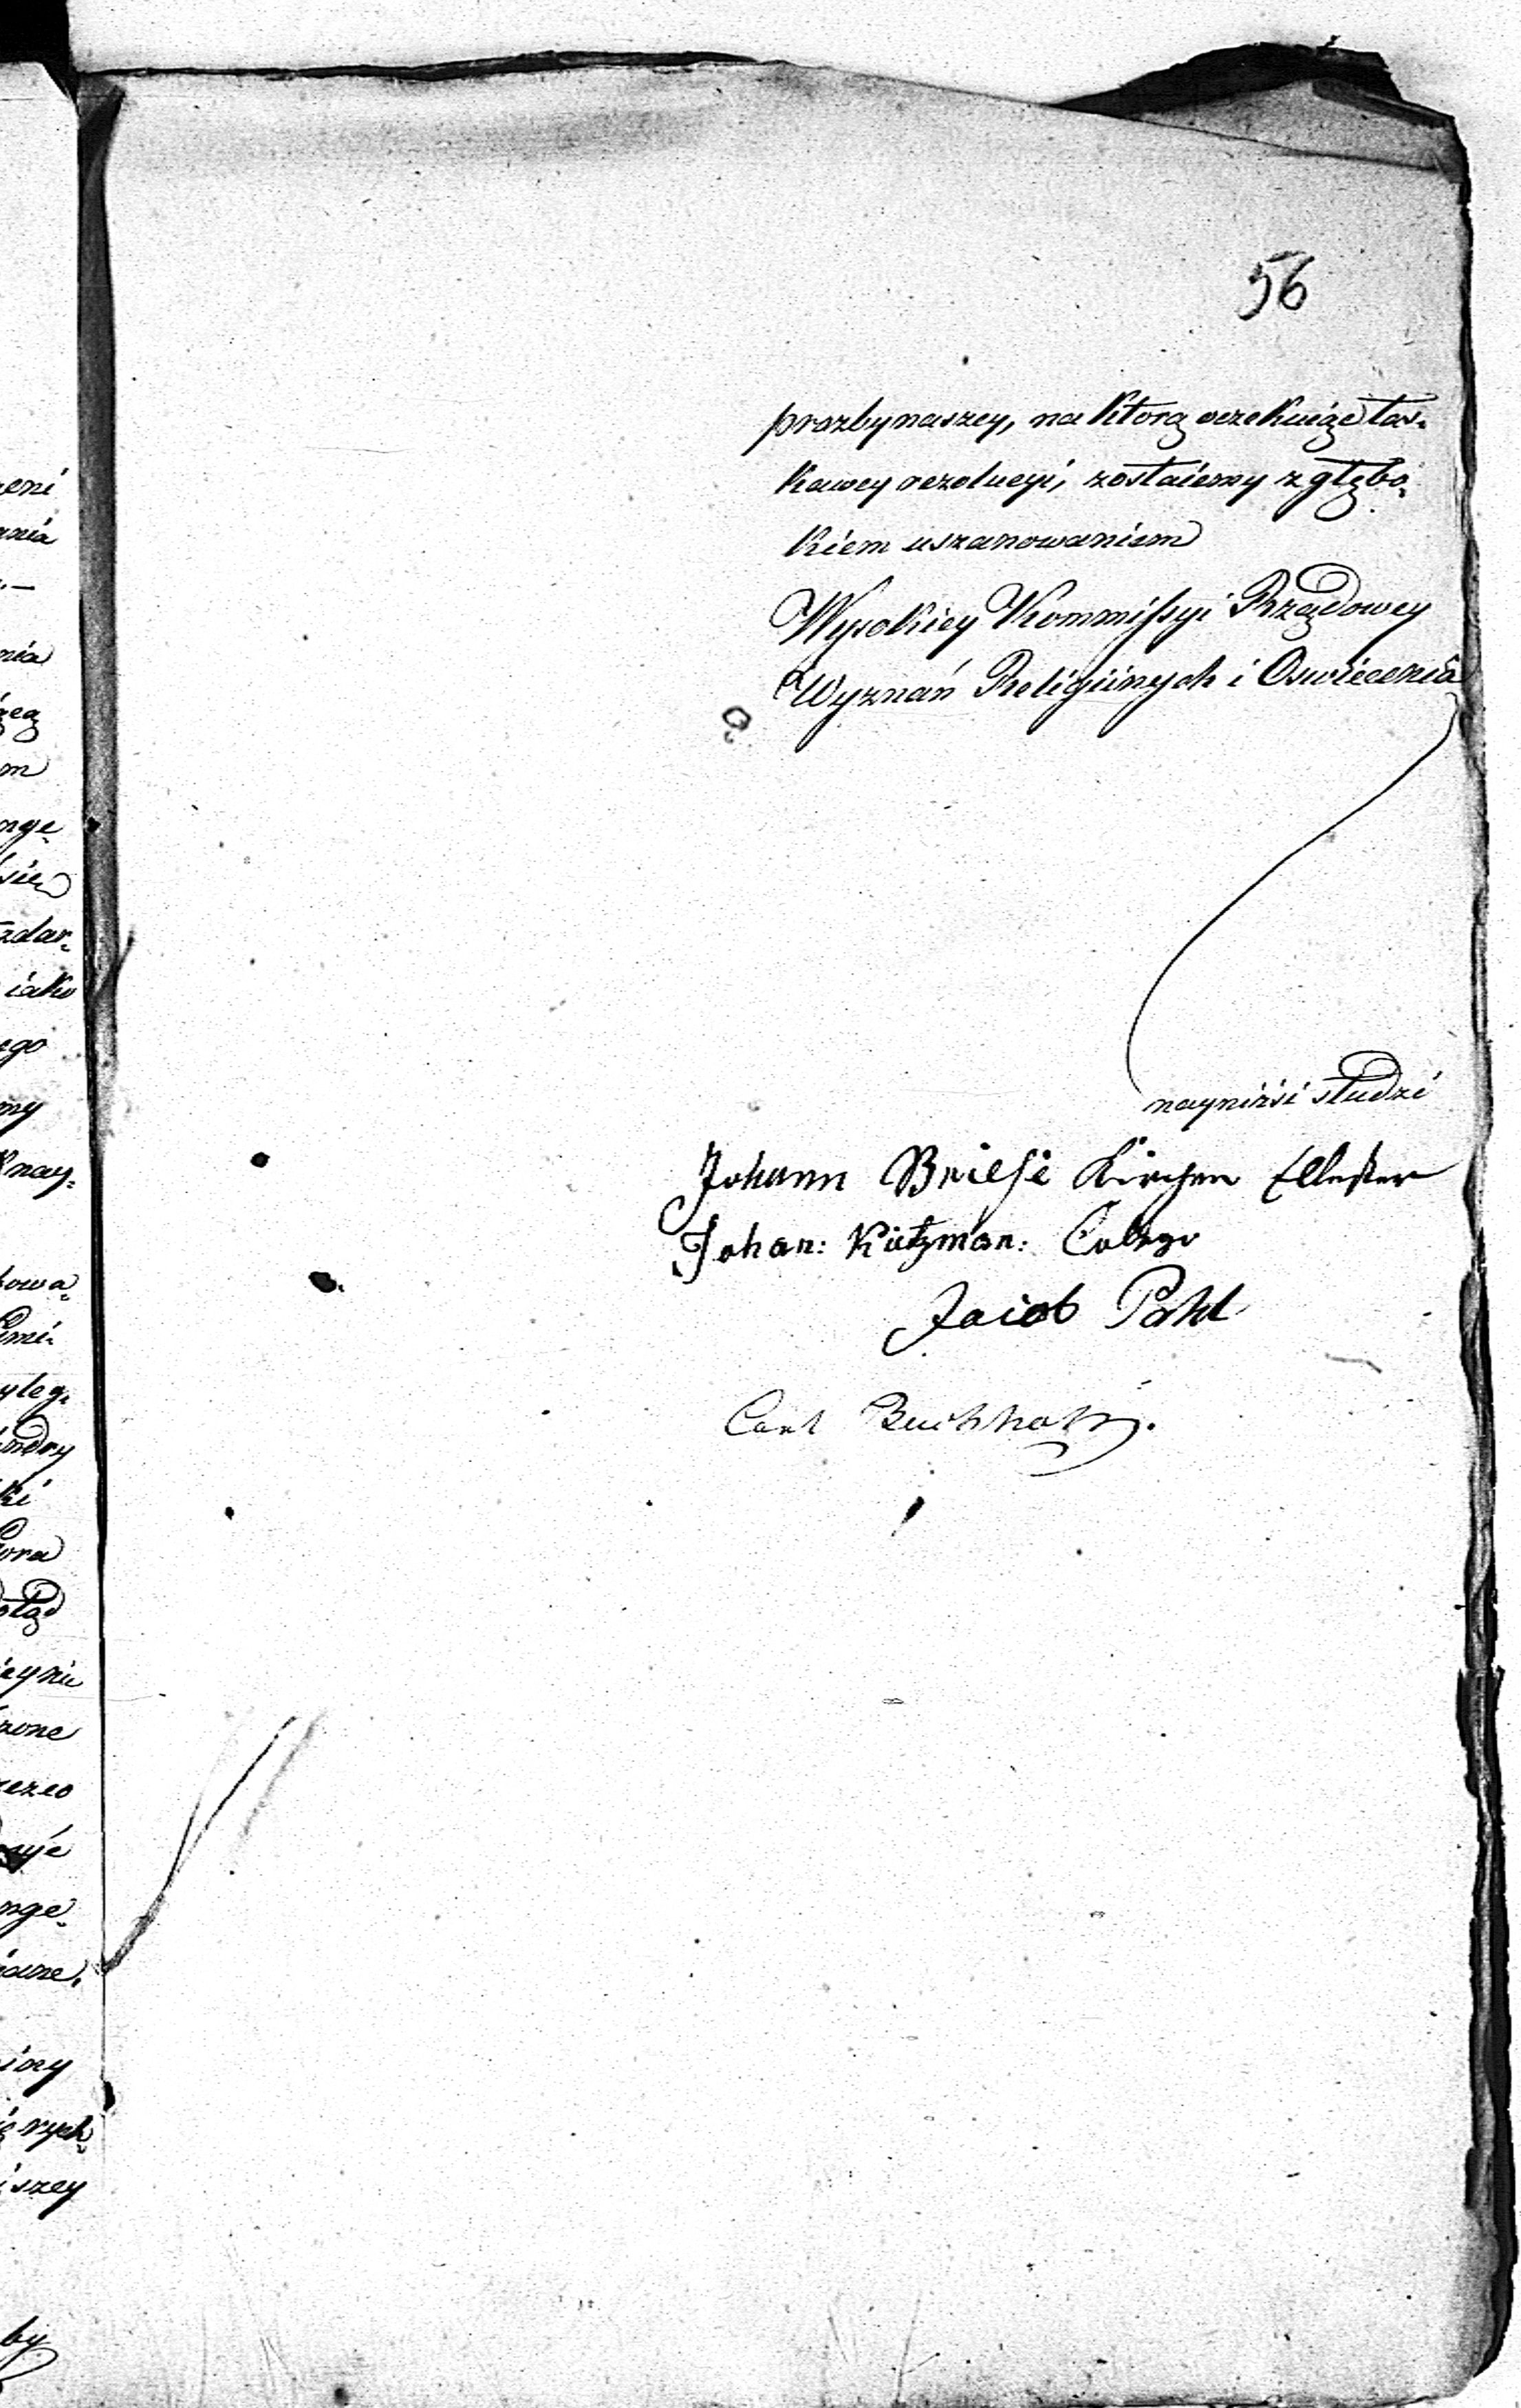 56
prozby naszey, na ktorą oczekuiąc łas-
kawey rezolucyi, zostaiemy z głębo-
kiem uszanowaniem
Wysokiey Kommissyi Rządowey
Wyznań Religiinych i Oswiecenia
nayniżsi słudzi
Johann Briese Kirchen Ellester
Johan: Kützman: Colege
Jacob Pahl
Carl Buchholz.
eni
nia
nia
m
nge-
zdar-
iako
ego
my
nay-
kowa-
yleg.
ki
nie
zone
nge-
rych
szey
by